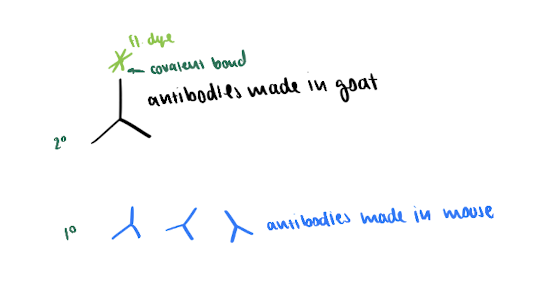 fl. dye
covalent bond
antibodies made in goat
2°
1°
antibodies made in mouse